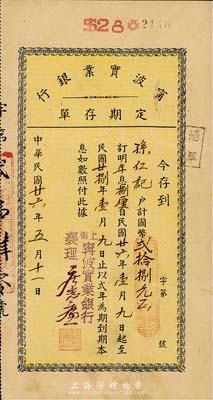 $28
2140
甯波實業銀行
定期存單
今存到
孫仁記 戶計國幣貳拾捌元正
字第 號
訂明 息 自民國廿六年壹月九日起至
民國廿捌年壹月九日止以弍年為期到期本
息如數照付此據
上海甯波實業銀行
襄理
中華民國廿六年五月十一日